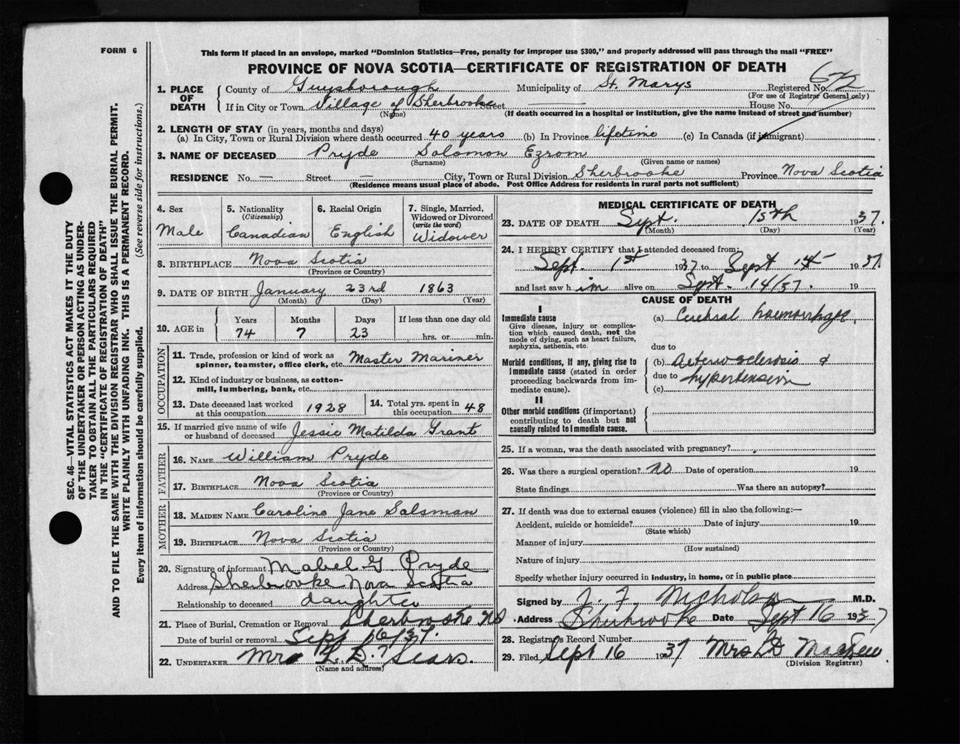 FORM 6
This form if placed in an envelope, marked "Dominion Statistics—Free, penalty for improper use $300," and properly addressed will pass through the mail "FREE"
PROVINCE OF NOVA SCOTIA—CERTIFICATE OF REGISTRATION OF DEATH
SEC. 46—VITAL STATISTICS ACT MAKES IT THE DUTY
OF THE UNDERTAKER OR PERSON ACTING AS UNDER-
TAKER TO OBTAIN ALL THE PARTICULARS REQUIRED
IN THE "CERTIFICATE OF REGISTRATION OF DEATH"
AND TO FILE THE SAME WITH THE DIVISION REGISTRAR WHO SHALL ISSUE THE BURIAL PERMIT.
WRITE PLAINLY WITH UNFADING INK. THIS IS A PERMANENT RECORD.
Every item of information should be carefully supplied. (See reverse side for instructions.)
1. PLACE OF DEATH
County of Guysborough Municipality of St. Marys Registered No.
(For use of Registrar General only)
If in City or Town Village of Sherbrooke Street House No.
(Name) (If death occurred in a hospital or institution, give the name instead of street and number)
2. LENGTH OF STAY (in years, months and days)
(a) In City, Town or Rural Division where death occurred 40 years (b) In Province lifetime (c) In Canada (if immigrant)
3. NAME OF DECEASED Pryde Solomon Ezrom
(Surname) (Given name or names)
RESIDENCE No. — Street — City, Town or Rural Division Sherbrooke Province Nova Scotia
(Residence means usual place of abode. Post Office Address for residents in rural parts not sufficient)
4. Sex Male
5. Nationality (Citizenship) Canadian
6. Racial Origin English
7. Single, Married, Widowed or Divorced (write the word) Widower
8. BIRTHPLACE Nova Scotia
(Province or Country)
9. DATE OF BIRTH January 23rd 1863
(Month) (Day) (Year)
10. AGE in Years Months Days If less than one day old
74 7 23 hrs. or min.
OCCUPATION
11. Trade, profession or kind of work as spinner, teamster, office clerk, etc. Master Mariner
12. Kind of industry or business, as cotton-mill, lumbering, bank, etc.
13. Date deceased last worked at this occupation 1928
14. Total yrs. spent in this occupation 48
15. If married give name of wife or husband of deceased Jessie Matilda Grant
FATHER
16. NAME William Pryde
17. BIRTHPLACE Nova Scotia
(Province or Country)
MOTHER
18. MAIDEN NAME Caroline Jane Salsman
19. BIRTHPLACE Nova Scotia
(Province or Country)
20. Signature of informant Mabel G. Pryde
Address Sherbrooke Nova Scotia
Relationship to deceased daughter
21. Place of Burial, Cremation or Removal Sherbrooke NS
Date of burial or removal Sept 16/37.
22. UNDERTAKER Mrs Sears.
(Name and address)
MEDICAL CERTIFICATE OF DEATH
23. DATE OF DEATH Sept. 15th 1937.
(Month) (Day) (Year)
24. I HEREBY CERTIFY that I attended deceased from:
Sept 1st 1937 to Sept 14th 1937.
and last saw him alive on Sept. 14/37. 19
CAUSE OF DEATH
I
Immediate cause
Give disease, injury or complication which caused death, not the mode of dying, such as heart failure, asphyxia, asthenia, etc.
(a) Cerebral haemorrhage
due to
Morbid conditions, if any, giving rise to immediate cause (stated in order proceeding backwards from immediate cause).
(b) Arteriosclerosis &
due to hypertension
(c)
II
Other morbid conditions (if important) contributing to death but not causally related to immediate cause.
25. If a woman, was the death associated with pregnancy?
26. Was there a surgical operation? no Date of operation 19
State findings Was there an autopsy?
27. If death was due to external causes (violence) fill in also the following:—
Accident, suicide or homicide? Date of injury 19
(State which)
Manner of injury
(How sustained)
Nature of injury
Specify whether injury occurred in industry, in home, or in public place
Signed by Nicholson M.D.
Address Sherbrooke Date Sept 16 1937
28. Registrars Record Number
29. Filed Sept 16 1937 Mrs
(Division Registrar)